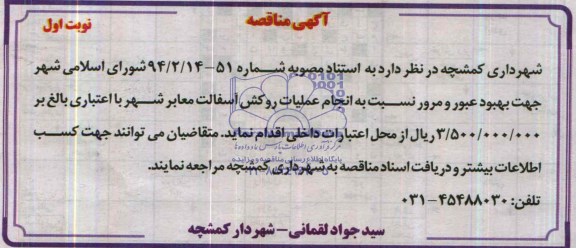 آگهی مناقصه
نوبت اول
شهرداری کمشچه در نظر دارد به استناد مصوبه شماره ۵۱–۹۴/۲/۱۴ شورای اسلامی شهر
جهت بهبود عبور و مرور نسبت به انجام عملیات روکش آسفالت معابر شهر با اعتباری بالغ بر
۳/۵۰۰/۰۰۰/۰۰۰ ریال از محل اعتبارات داخلی اقدام نماید. متقاضیان می توانند جهت کسب
اطلاعات بیشتر و دریافت اسناد مناقصه به شهرداری کمشچه مراجعه نمایند.
تلفن: ۴۵۴۸۸۰۳۰–۰۳۱
سید جواد لقمانی – شهردار کمشچه